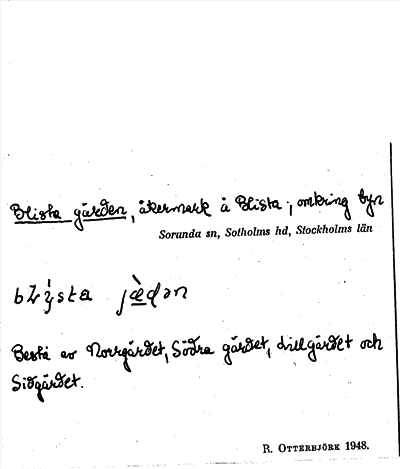 Blista gärden, åkermark å Blista; omkring byn
Sorunda sn, Sotholms hd, Stockholms län
jæ̀dən
Består av Norrgärdet, Södra gärdet, Lillgärdet och
Sidgärdet.
R. OTTERBJÖRK 1948.